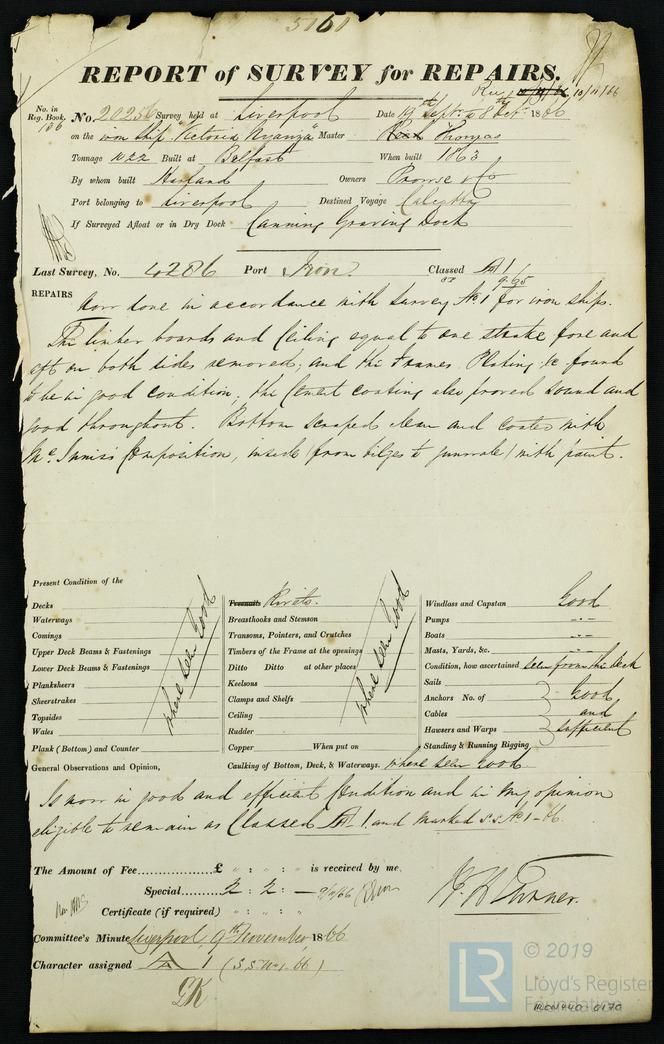 5161
REPORT of SURVEY for REPAIRS.
10/11/66
No. in Reg. Book. 186 No. 20256 Survey held at Liverpool Date 19th Septr to 8th Octr 1866
on the iron ship "Victoria Nyanza" Master Thomas
Tonnage 1022 Built at Belfast When built 1863
By whom built Harland Owners Prowse & Co
Port belonging to Liverpool Destined Voyage Calcutta
If Surveyed Afloat or in Dry Dock Canning Graving Dock
Last Survey, No. 4286 Port Iron. Classed A1
9.65
REPAIRS Now done in accordance with Survey No 1 for iron ships.
The limber boards and Ceiling equal to one strake fore and
aft on both sides removed, and the Frames Plating &c found
to be in good condition, the Cement coating also proved sound and
good throughout. Bottom scraped clean and coated with
Mc.Inniss Composition, inside (from bilges to gunwale) with paint.
Present Condition of the
Decks
Waterways
Comings
Upper Deck Beams & Fastenings
Lower Deck Beams & Fastenings
Planksheers
Sheerstrakes
Topsides
Wales
Plank (Bottom) and Counter
where seen Good
Treenails Rivets.
Breasthooks and Stemson
Transoms, Pointers, and Crutches
Timbers of the Frame at the openings
Ditto Ditto at other places
Keelsons
Clamps and Shelfs
Ceiling
Rudder
Copper When put on
where seen Good
Caulking of Bottom, Deck, & Waterways. where seen Good
Windlass and Capstan Good
Pumps -..-
Boats -..-
Masts, Yards, &c. -..-
Condition, how ascertained seen from the deck
Sails
Anchors No. of Good
Cables and
Hawsers and Warps sufficient
Standing & Running Rigging
General Observations and Opinion,
Is now in good and efficient Condition and in my opinion
eligible to remain as Classed A1 and marked S.S. No 1-66.
The Amount of Fee £ " : " : " is received by me,
Special 2 : 2 : —
Certificate (if required) " : " : "
Committee's Minute Liverpool, 9th November, 1866
Character assigned A 1 (S.S. No 1-66)
GK
© 2019
LR
Lloyd's Register
Foundation
IRON440-0170